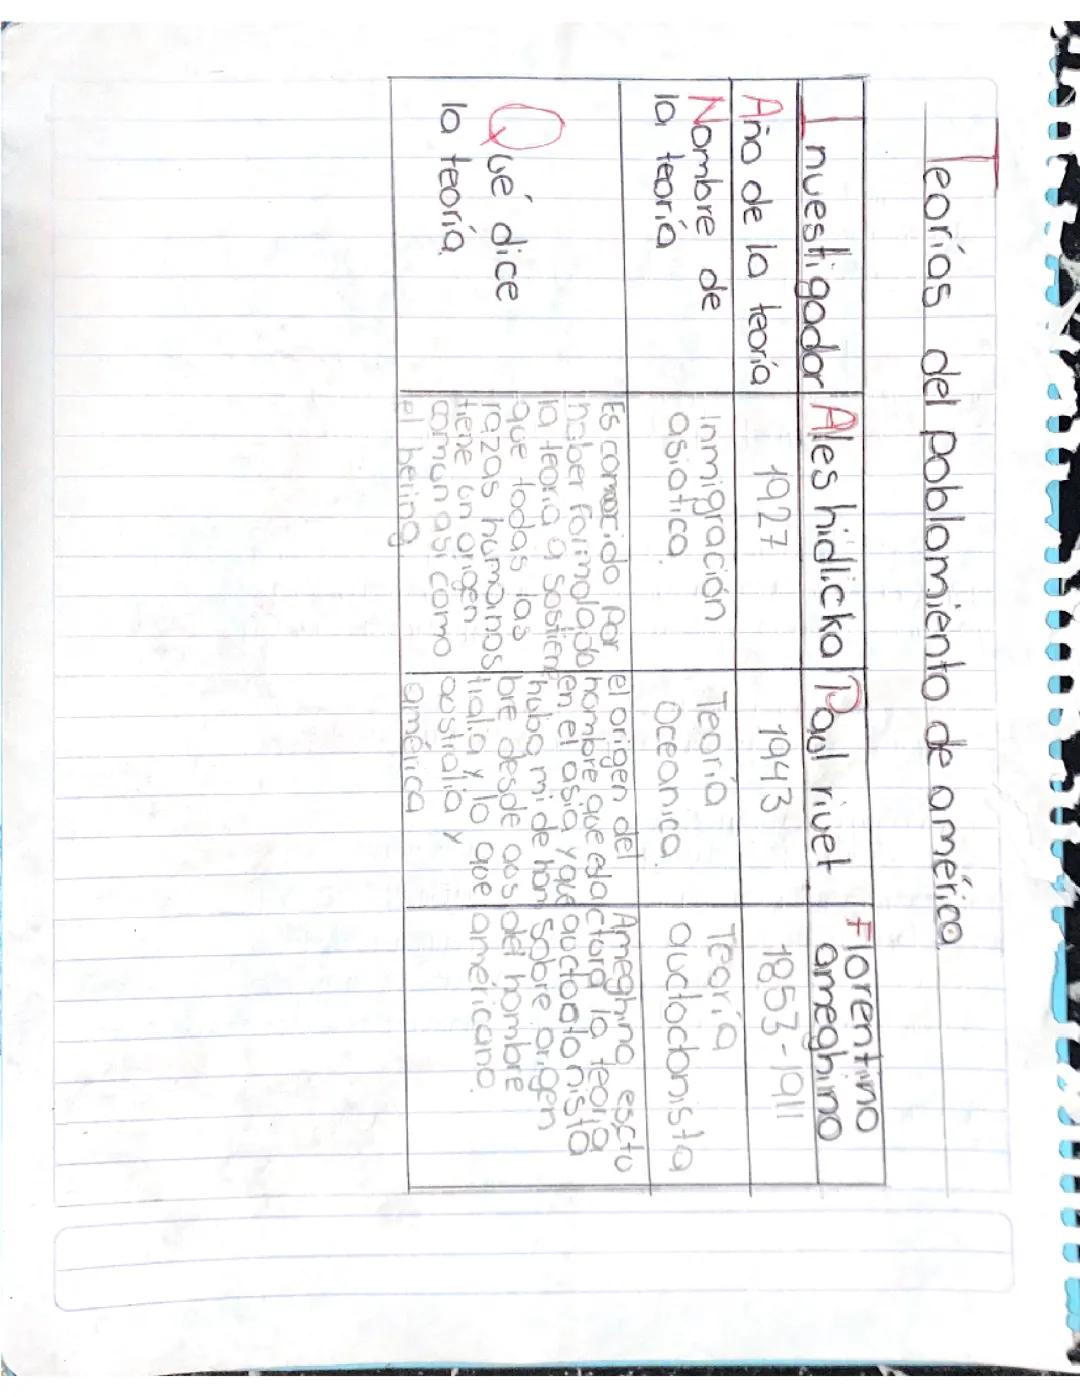 Teorías del poblamiento de américa
Investigador
Ales hidlicka
Paul rivet
Florentino
ameghino
Año de la teoría
1927
1943
1853-1911
Nombre de
la teoría
Inmigración
asiatica.
Teoría
Oceanica.
Teoría
auctoctonista
Qué dice
la teoría.
Es conocido por
haber formolado
la teoria q sostiene
que todas las
razas humainas
tiene un origen
comun asi como
el hering
el origen del
hombre que esta
en el asia y que
hubo mi de hom
bre desde aos
tralia y lo que
australia y
américa
Ameghino esctu
ctura la teoria
auctoctonista
sobre origen
del hombre
américano.